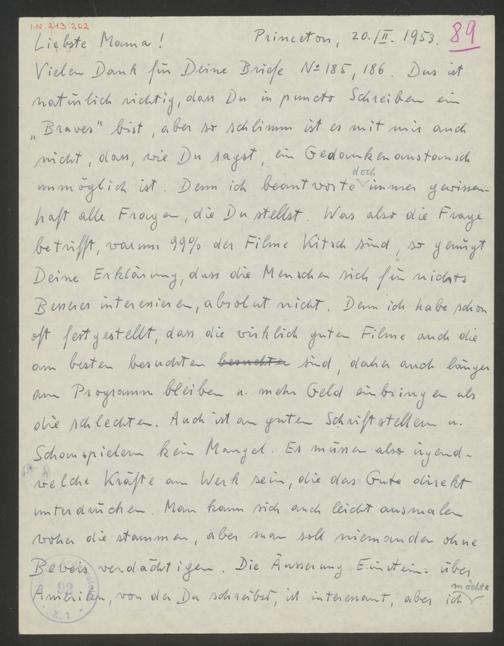 I.N. 213.202
89
Liebste Mama! Princeton, 20./II. 1953.
Vielen Dank für Deine Briefe No 185, 186. Das ist
natürlich richtig, dass Du in puncto Schreiben ein
„Braves" bist, aber so schlimm ist es mit mir auch
nicht, dass, wie Du sagst, ein Gedankenaustausch
unmöglich ist. Denn ich beantworte doch immer gewissen-
haft alle Fragen, die Du stellst. Was also die Frage
betrifft, warum 99% der Filme Kitsch sind, so genügt
Deine Erklärung, dass die Menschen sich für nichts
Besseres interessieren, absolut nicht. Denn ich habe schon
oft festgestellt, dass die wirklich guten Filme auch die
am besten besuchten besuchte sind, daher auch länger
am Programm bleiben u. mehr Geld einbringen als
die schlechten. Auch ist an guten Schriftstellern u.
Schauspielern kein Mangel. Es müssen also irgend-
welche Kräfte am Werk sein, die das Gute direkt
unterdrücken. Man kann sich auch leicht ausmalen
woher die stammen, aber man soll niemanden ohne
Beweis verdächtigen. Die Äusserung Einsteins über
Amerika, von der Du schreibst, ist interessant, aber ich möchte